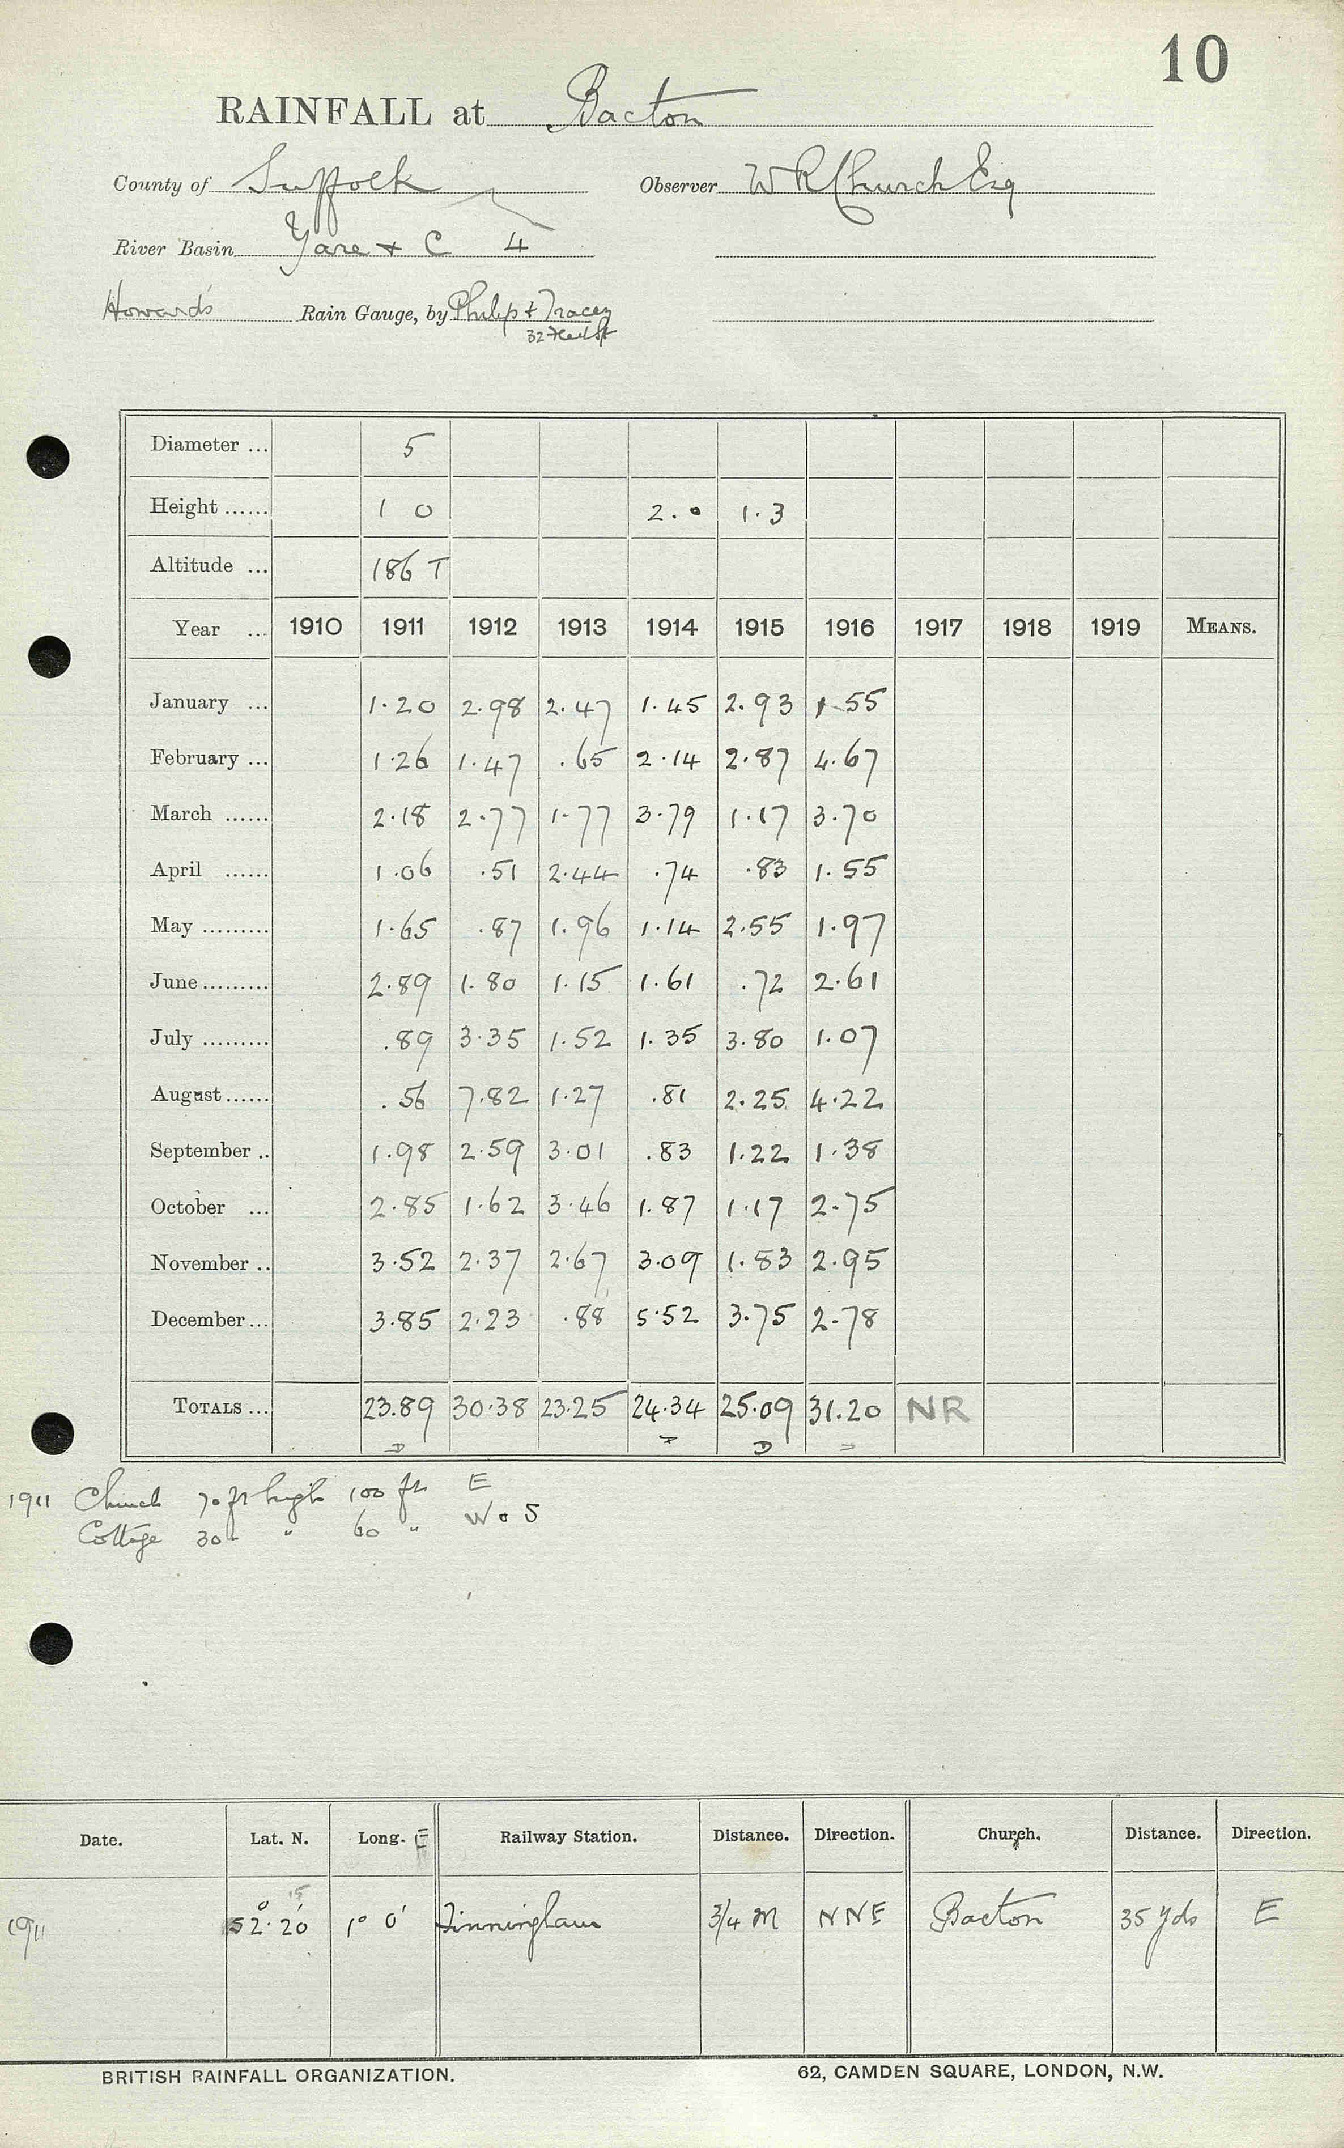 10
RAINFALL at Bacton
County of Suffolk Observer W R Church Esq
River Basin Yare & C 4
Howards Rain Gauge, by Philip & Tracey
32
Diameter ... 5
Height ...... 1 0 2.0 1.3
Altitude ... 186 T
Year ... 1910 1911 1912 1913 1914 1915 1916 1917 1918 1919 MEANS.
January ... 1.20 2.98 2.47 1.45 2.93 1.55
February ... 1.26 1.47 .65 2.14 2.87 4.67
March ...... 2.18 2.77 1.77 3.79 1.17 3.70
April ...... 1.06 .51 2.44 .74 .83 1.55
May ......... 1.65 .87 1.96 1.14 2.55 1.97
June ......... 2.89 1.80 1.15 1.61 .72 2.61
July ......... .89 3.35 1.52 1.35 3.80 1.07
August ...... .56 7.82 1.27 .81 2.25 4.22
September .. 1.98 2.59 3.01 .83 1.22 1.38
October ... 2.85 1.62 3.46 1.87 1.17 2.75
November .. 3.52 2.37 2.67 3.09 1.83 2.95
December ... 3.85 2.23 .88 5.52 3.75 2.78
TOTALS ... 23.89 30.38 23.25 24.34 25.09 31.20 NR
D D
1911 Church 70 ft high 100 ft E
Cottage 30 " 60 " W o S
Date. Lat. N. Long. E Railway Station. Distance. Direction. Church. Distance. Direction.
15
1911 52° 20' 1° 0' Finningham 3/4 M NNE Bacton 35 yds E
BRITISH RAINFALL ORGANIZATION. 62, CAMDEN SQUARE, LONDON, N.W.